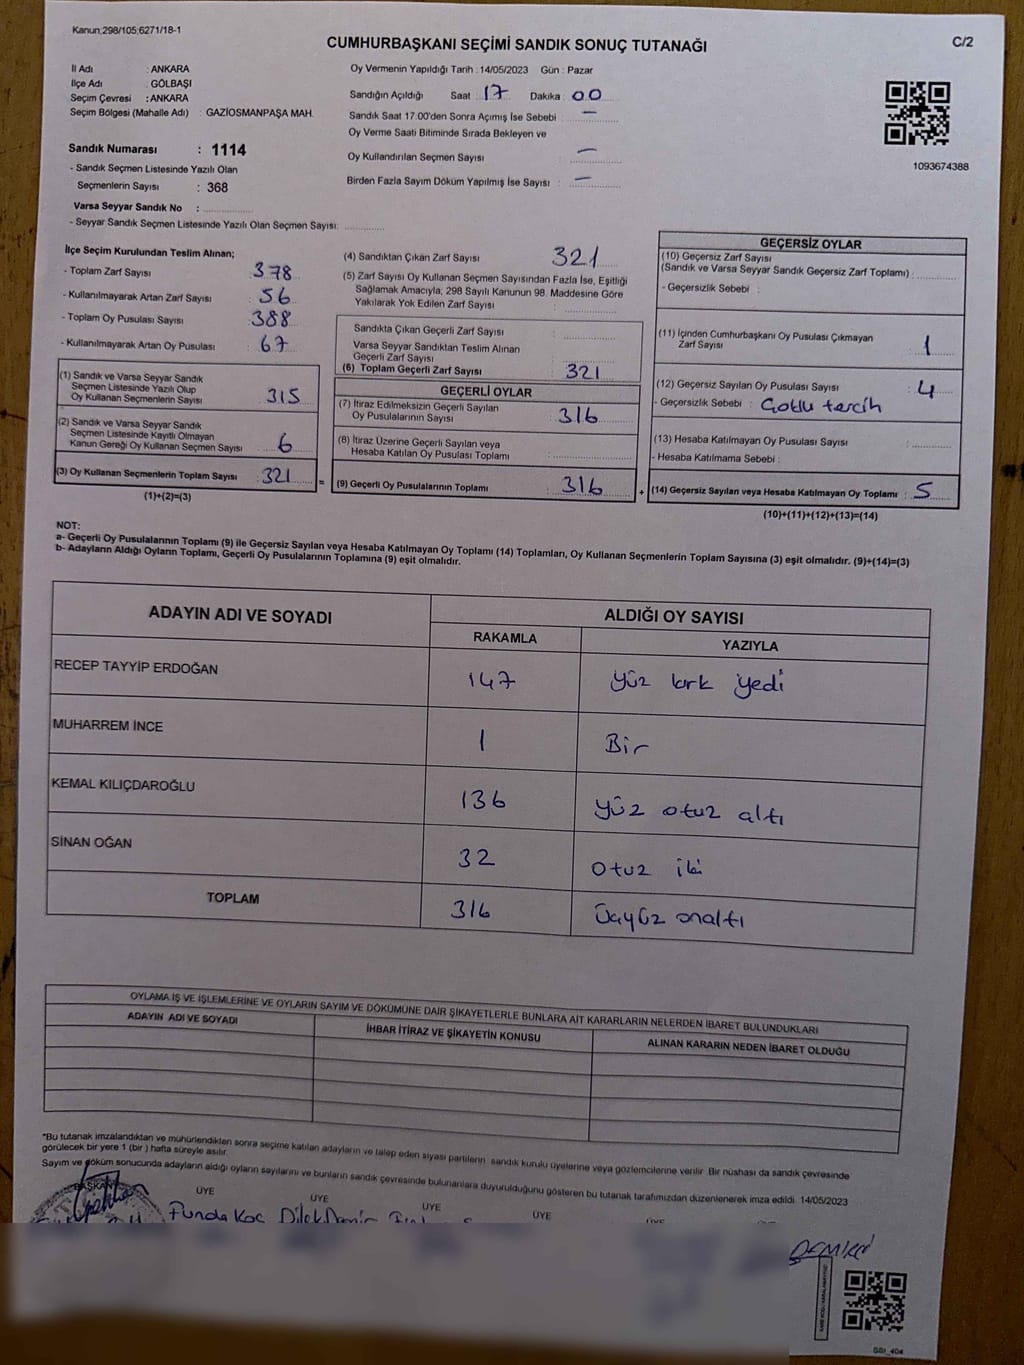 Kanun:298/105;6271/18-1
C/2
CUMHURBAŞKANI SEÇİMİ SANDIK SONUÇ TUTANAĞI
İl Adı : ANKARA
İlçe Adı : GÖLBAŞI
Seçim Çevresi : ANKARA
Seçim Bölgesi (Mahalle Adı) : GAZİOSMANPAŞA MAH.
Sandık Numarası : 1114
- Sandık Seçmen Listesinde Yazılı Olan
Seçmenlerin Sayısı : 368
Varsa Seyyar Sandık No :
- Seyyar Sandık Seçmen Listesinde Yazılı Olan Seçmen Sayısı:
Oy Vermenin Yapıldığı Tarih : 14/05/2023 Gün : Pazar
Sandığın Açıldığı Saat : 17 Dakika : 00
Sandık Saat 17:00'den Sonra Açımış İse Sebebi : —
Oy Verme Saati Bitiminde Sırada Bekleyen ve
Oy Kullandırılan Seçmen Sayısı : —
Birden Fazla Sayım Döküm Yapılmış İse Sayısı : —
1093674388
İlçe Seçim Kurulundan Teslim Alınan;
- Toplam Zarf Sayısı : 378
- Kullanılmayarak Artan Zarf Sayısı : 56
- Toplam Oy Pusulası Sayısı : 388
- Kullanılmayarak Artan Oy Pusulası : 67
(1) Sandık ve Varsa Seyyar Sandık
Seçmen Listesinde Yazılı Olup
Oy Kullanan Seçmenlerin Sayısı : 315
(2) Sandık ve Varsa Seyyar Sandık
Seçmen Listesinde Kayıtlı Olmayan
Kanun Gereği Oy Kullanan Seçmen Sayısı : 6
(3) Oy Kullanan Seçmenlerin Toplam Sayısı : 321 =
(1)+(2)=(3)
(4) Sandıktan Çıkan Zarf Sayısı : 321
(5) Zarf Sayısı Oy Kullanan Seçmen Sayısından Fazla İse, Eşitliği
Sağlamak Amacıyla; 298 Sayılı Kanunun 98. Maddesine Göre
Yakılarak Yok Edilen Zarf Sayısı :
Sandıkta Çıkan Geçerli Zarf Sayısı :
Varsa Seyyar Sandıktan Teslim Alınan
Geçerli Zarf Sayısı :
(6) Toplam Geçerli Zarf Sayısı : 321
GEÇERLİ OYLAR
(7) İtiraz Edilmeksizin Geçerli Sayılan
Oy Pusulalarının Sayısı : 316
(8) İtiraz Üzerine Geçerli Sayılan veya
Hesaba Katılan Oy Pusulası Toplamı :
(9) Geçerli Oy Pusulalarının Toplamı : 316 +
GEÇERSİZ OYLAR
(10) Geçersiz Zarf Sayısı
(Sandık ve Varsa Seyyar Sandık Geçersiz Zarf Toplamı) :
- Geçersizlik Sebebi :
(11) İçinden Cumhurbaşkanı Oy Pusulası Çıkmayan
Zarf Sayısı : 1
(12) Geçersiz Sayılan Oy Pusulası Sayısı : 4
- Geçersizlik Sebebi : Çoklu tercih
(13) Hesaba Katılmayan Oy Pusulası Sayısı :
- Hesaba Katılmama Sebebi :
(14) Geçersiz Sayılan veya Hesaba Katılmayan Oy Toplamı : 5
(10)+(11)+(12)+(13)=(14)
NOT:
a- Geçerli Oy Pusulalarının Toplamı (9) ile Geçersiz Sayılan veya Hesaba Katılmayan Oy Toplamı (14) Toplamları, Oy Kullanan Seçmenlerin Toplam Sayısına (3) eşit olmalıdır. (9)+(14)=(3)
b- Adayların Aldığı Oyların Toplamı, Geçerli Oy Pusulalarının Toplamına (9) eşit olmalıdır.
ADAYIN ADI VE SOYADI
ALDIĞI OY SAYISI
RAKAMLA YAZIYLA
RECEP TAYYİP ERDOĞAN 147 yüz kırk yedi
MUHARREM İNCE 1 Bir
KEMAL KILIÇDAROĞLU 136 yüz otuz altı
SİNAN OĞAN 32 Otuz iki
TOPLAM 316 Üçyüz onaltı
OYLAMA İŞ VE İŞLEMLERİNE VE OYLARIN SAYIM VE DÖKÜMÜNE DAİR ŞİKAYETLERLE BUNLARA AİT KARARLARIN NELERDEN İBARET BULUNDUKLARI
ADAYIN ADI VE SOYADI İHBAR İTİRAZ VE ŞİKAYETİN KONUSU ALINAN KARARIN NEDEN İBARET OLDUĞU
*Bu tutanak imzalandıktan ve mühürlendikten sonra seçime katılan adayların ve talep eden siyasi partilerin sandık kurulu üyelerine veya gözlemcilerine verilir. Bir nüshası da sandık çevresinde
görülecek bir yere 1 (bir ) hafta süreyle asılır.
Sayım ve döküm sonucunda adayların aldığı oyların sayılarını ve bunların sandık çevresinde bulunanlara duyurulduğunu gösteren bu tutanak tarafımızdan düzenlenerek imza edildi. 14/05/2023
BAŞKAN ÜYE ÜYE ÜYE ÜYE ÜYE
Funda Koç Dilek Demir
SSI_404